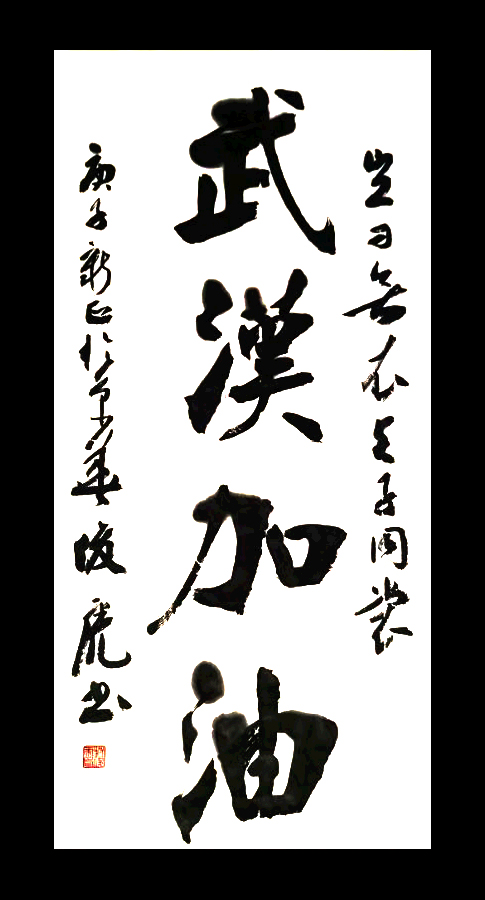 豈曰無衣與子同裳
武漢加油
庚子新正於京華俊虎書